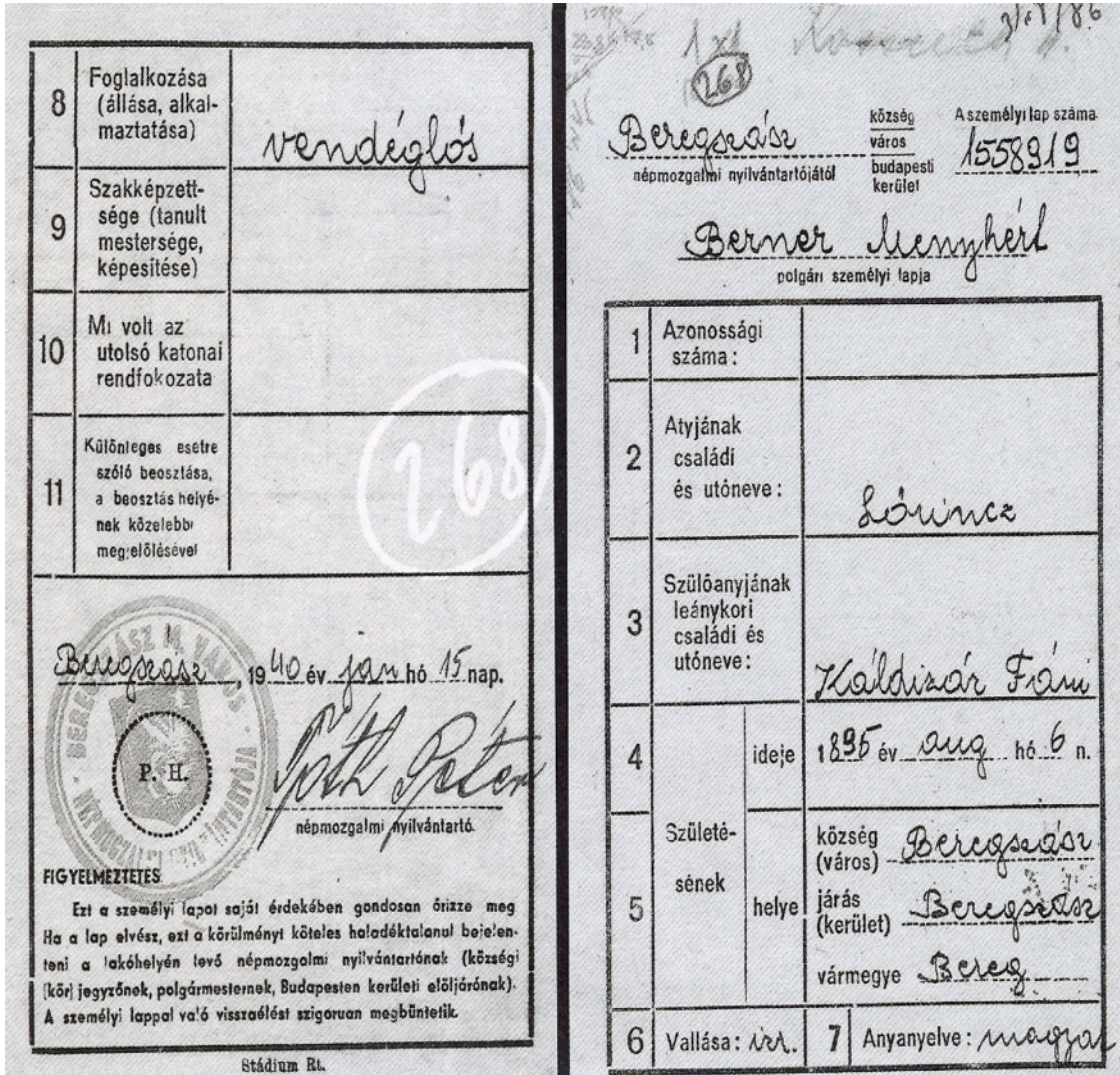 8
Foglalkozása
(állása, alkal-
maztatása)
vendéglős
9
Szakképzett-
sége (tanult
mestersége,
képesítése)
10
Mi volt az
utolsó katonai
rendfokozata
11
Különleges esetre
szóló beosztása,
a beosztás helyé-
nek közelebbi
megjelölésével
268
Beregszász, 1940 év jan hó 15 nap.
BEREGSZÁSZ M. VÁROS
P. H.
Tóth Péter
népmozgalmi nyilvántartó.
FIGYELMEZTETÉS
Ezt a személyi lapot saját érdekében gondosan őrizze meg
Ha a lap elvész, ezt a körülményt köteles haladéktalanul bejelen-
teni a lakóhelyén levő népmozgalmi nyilvántartónak (községi
(kör) jegyzőnek, polgármesternek, Budapesten kerületi elöljárónak).
A személyi lappal való visszaélést szigoruan megbüntetik.
Stádium Rt.
1x1
268
Beregszász
község
város
budapesti
kerület
népmozgalmi nyilvántartójától
A személyi lap száma
1558919
Berner Menyhért
polgári személyi lapja
1
Azonossági
száma:
2
Atyjának
családi
és utóneve:
Lőrincz
3
Szülőanyjának
leánykori
családi és
utóneve:
Káldizár Fáni
4
Születé-
sének
ideje
1895 év aug hó 6 n.
5
helye
község
(város) Beregszász
járás
(kerület) Beregszász
vármegye Bereg
6 Vallása: izr. 7 Anyanyelve: magyar